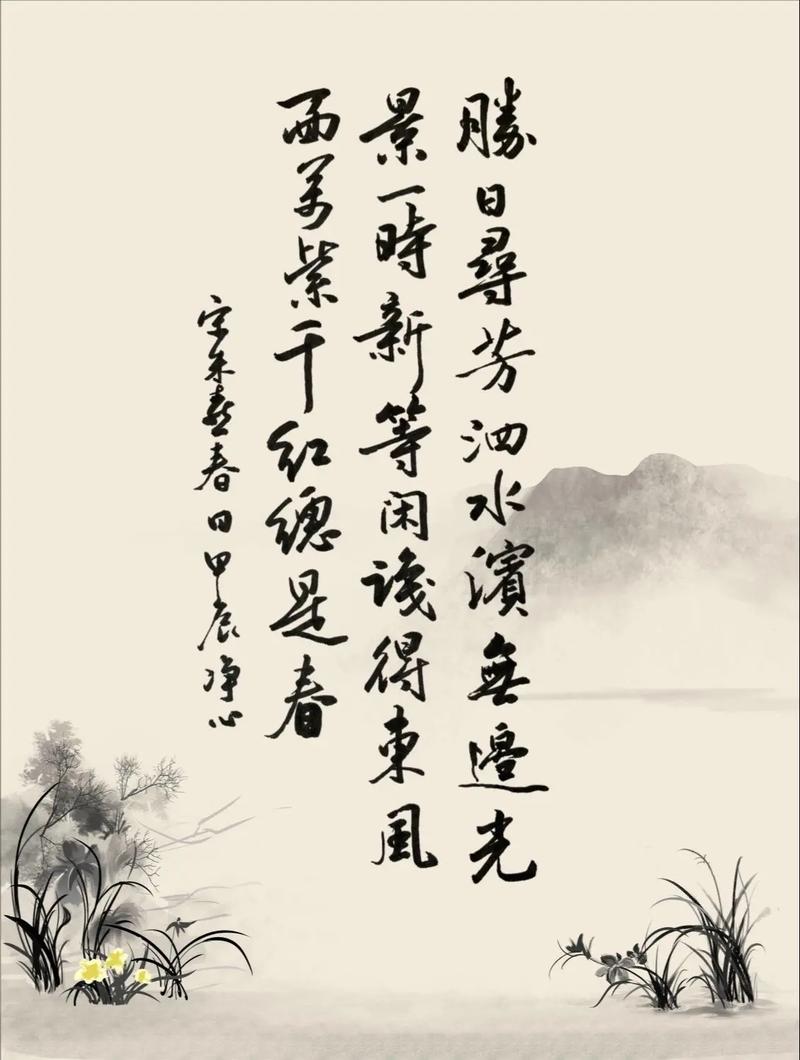 勝日尋芳泗水濱無邊光
景一時新等闲識得東風
面萬紫千红總是春
宋朱熹春日甲辰净心